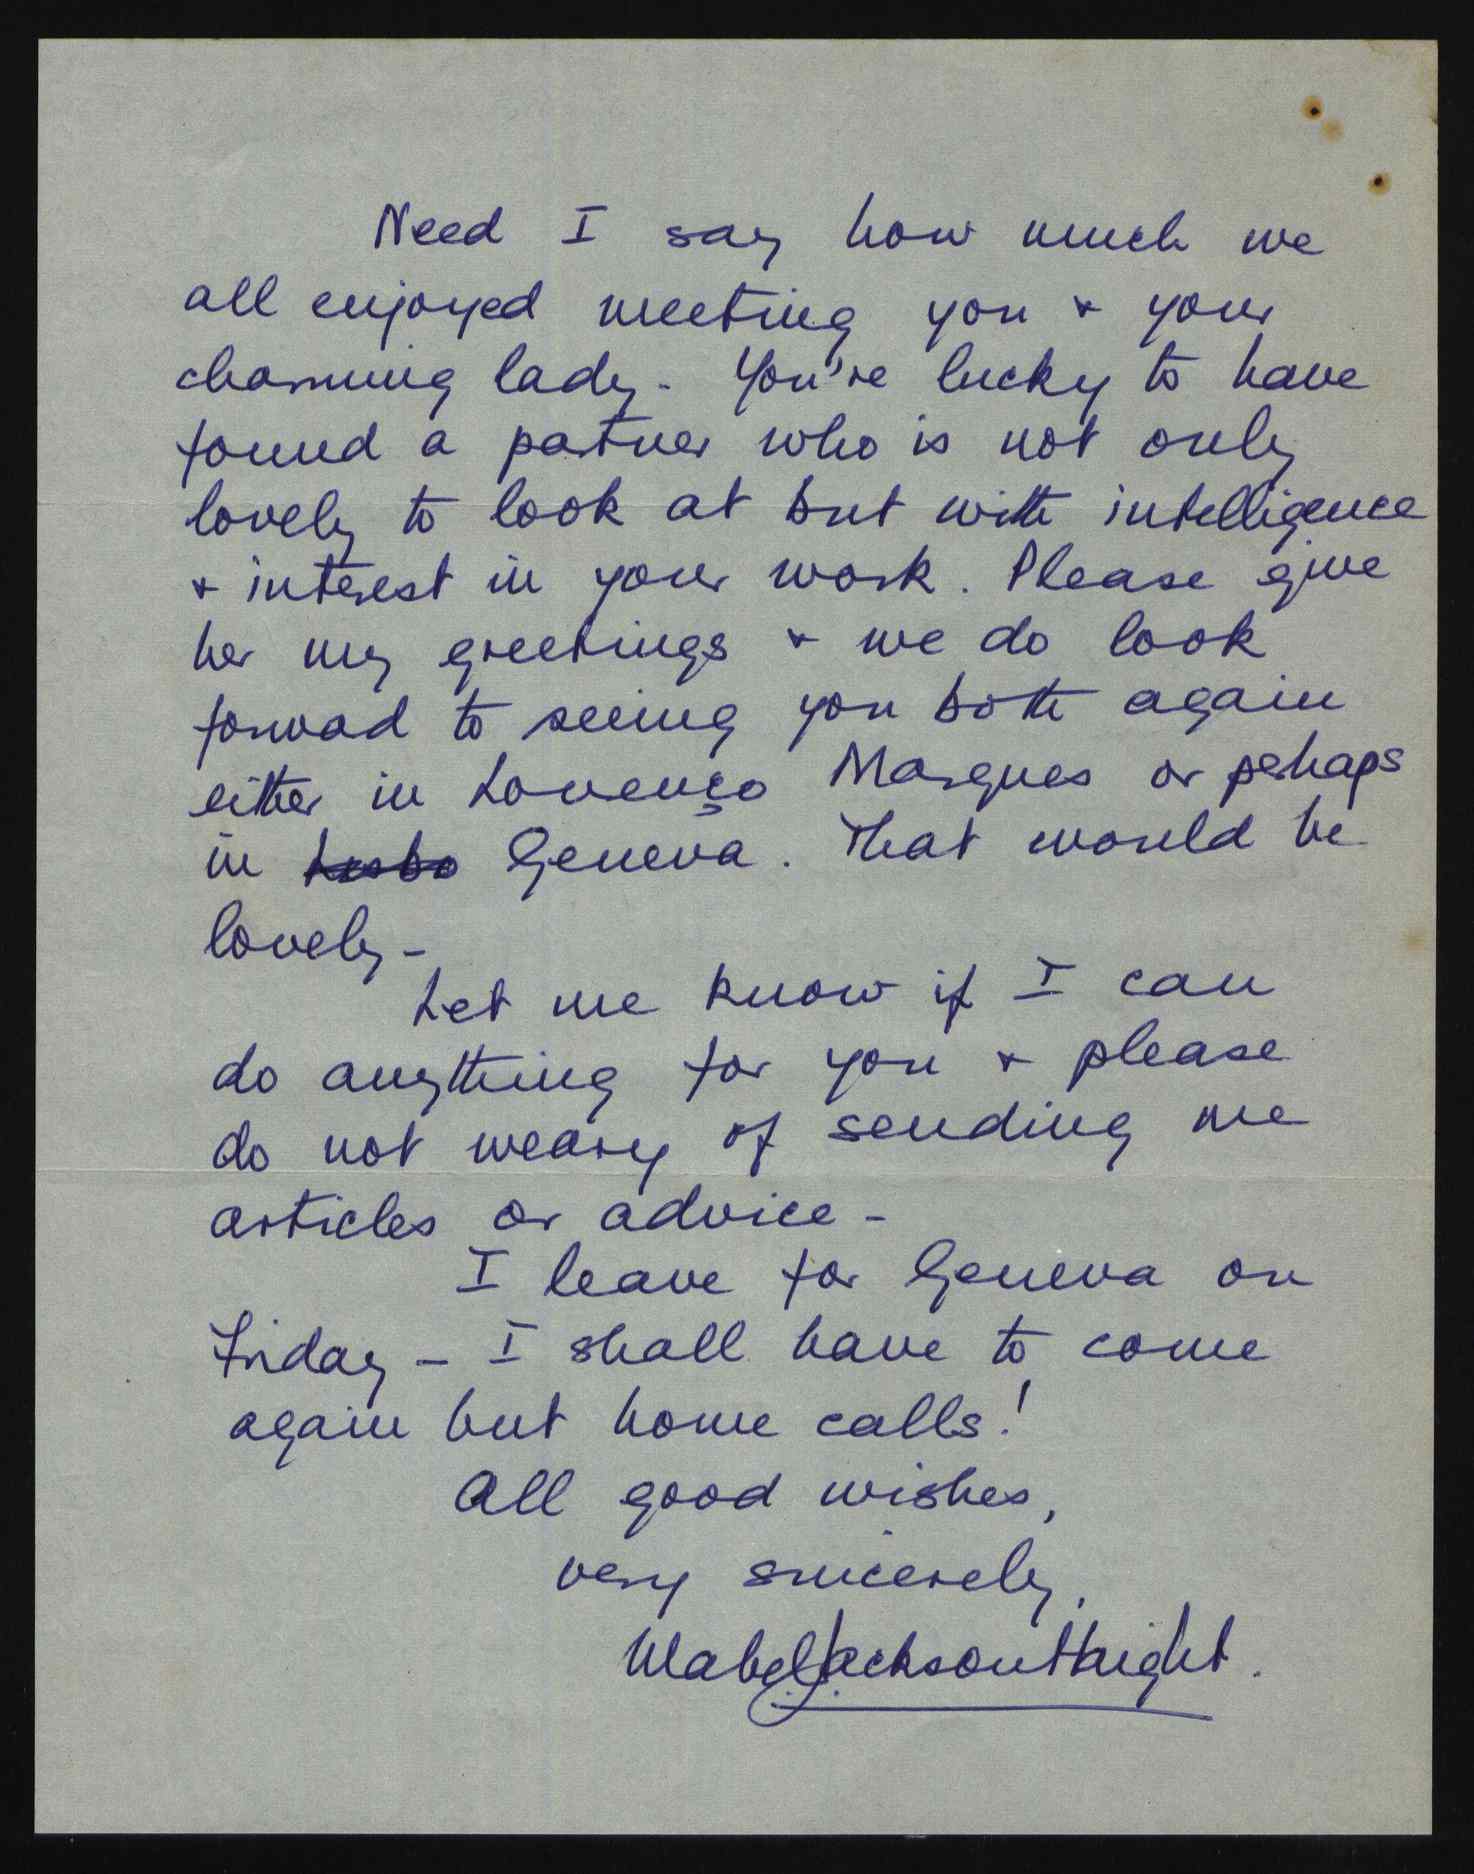 Need I say how much we
all enjoyed meeting you & your
charming lady. You're lucky to have
found a partner who is not only
lovely to look at but with intelligence
& interest in your work. Please give
her my greetings & we do look
forward to seeing you both again
either in Lourenço Marques or perhaps
in Geneva. That would be
lovely -
Let me know if I can
do anything for you & please
do not weary of sending me
articles or advice -
I leave for Geneva on
Friday - I shall have to come
again but home calls!
All good wishes,
very sincerely,
Mabel Jackson Haight.